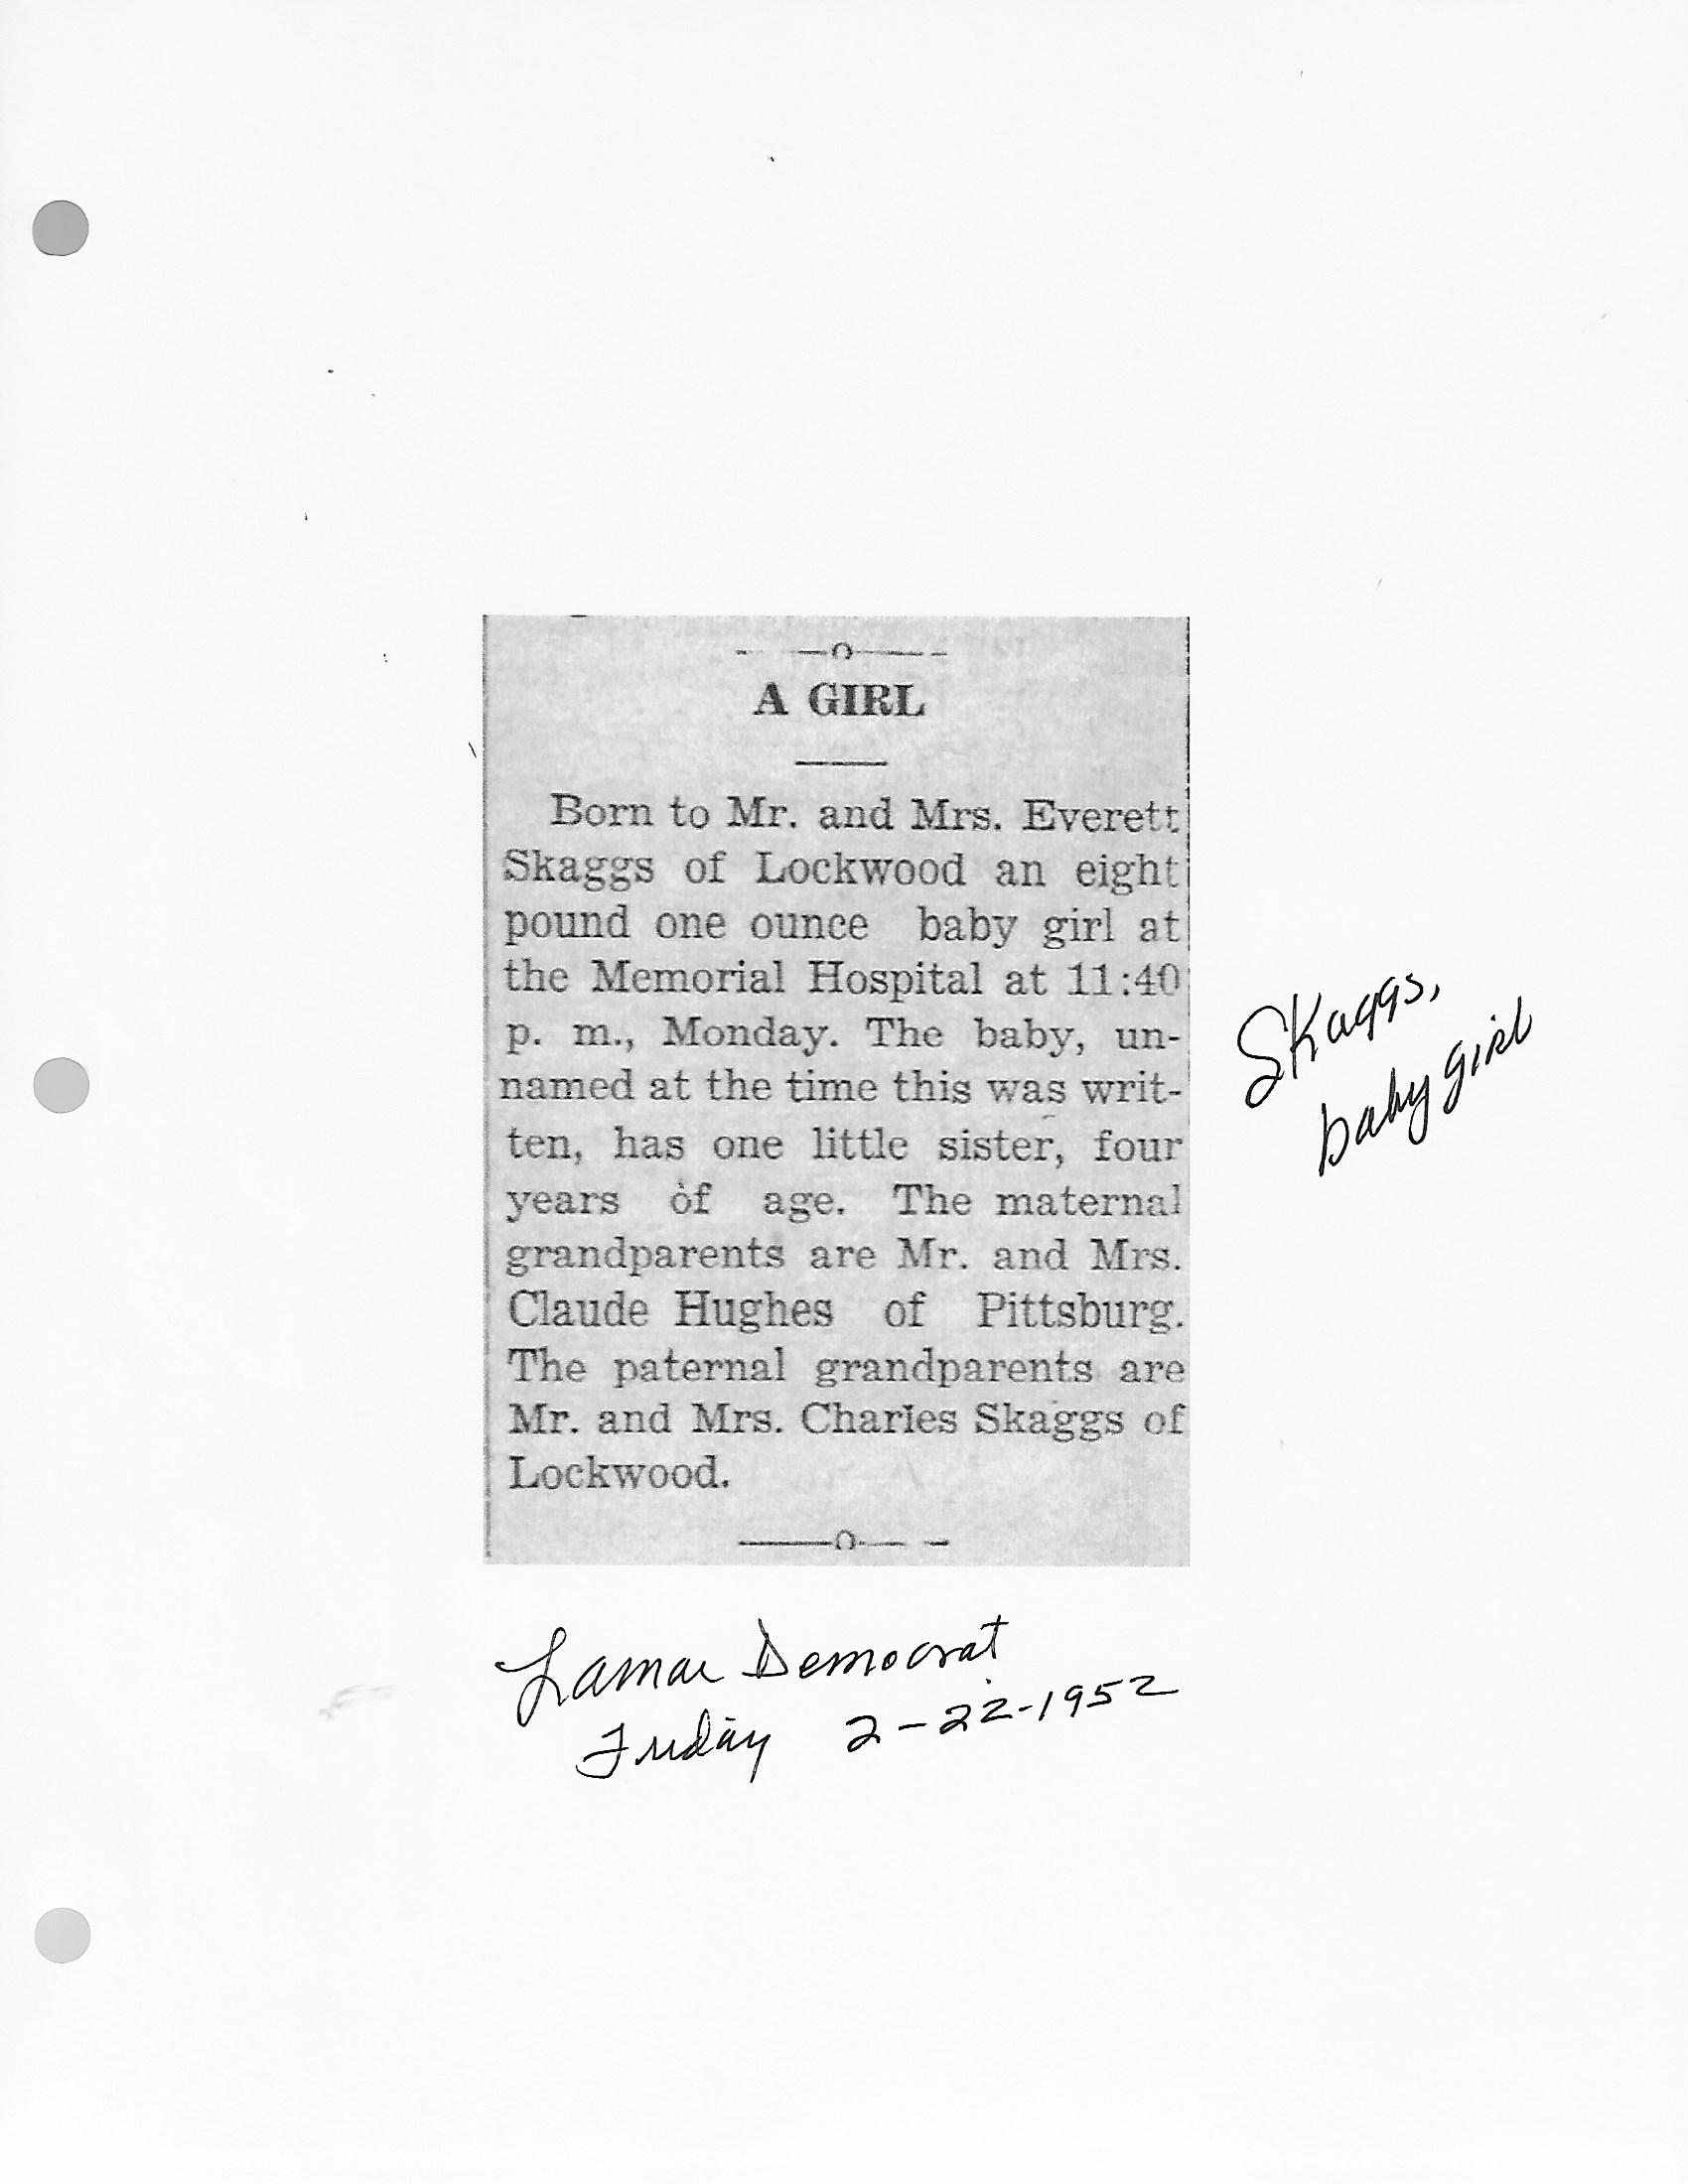 A GIRL
Born to Mr. and Mrs. Everett
Skaggs of Lockwood an eight
pound one ounce baby girl at
the Memorial Hospital at 11:40
p. m., Monday. The baby, un-
named at the time this was writ-
ten, has one little sister, four
years of age. The maternal
grandparents are Mr. and Mrs.
Claude Hughes of Pittsburg.
The paternal grandparents are
Mr. and Mrs. Charles Skaggs of
Lockwood.
Skaggs,
baby girl
Lamar Democrat
Friday 2-22-1952